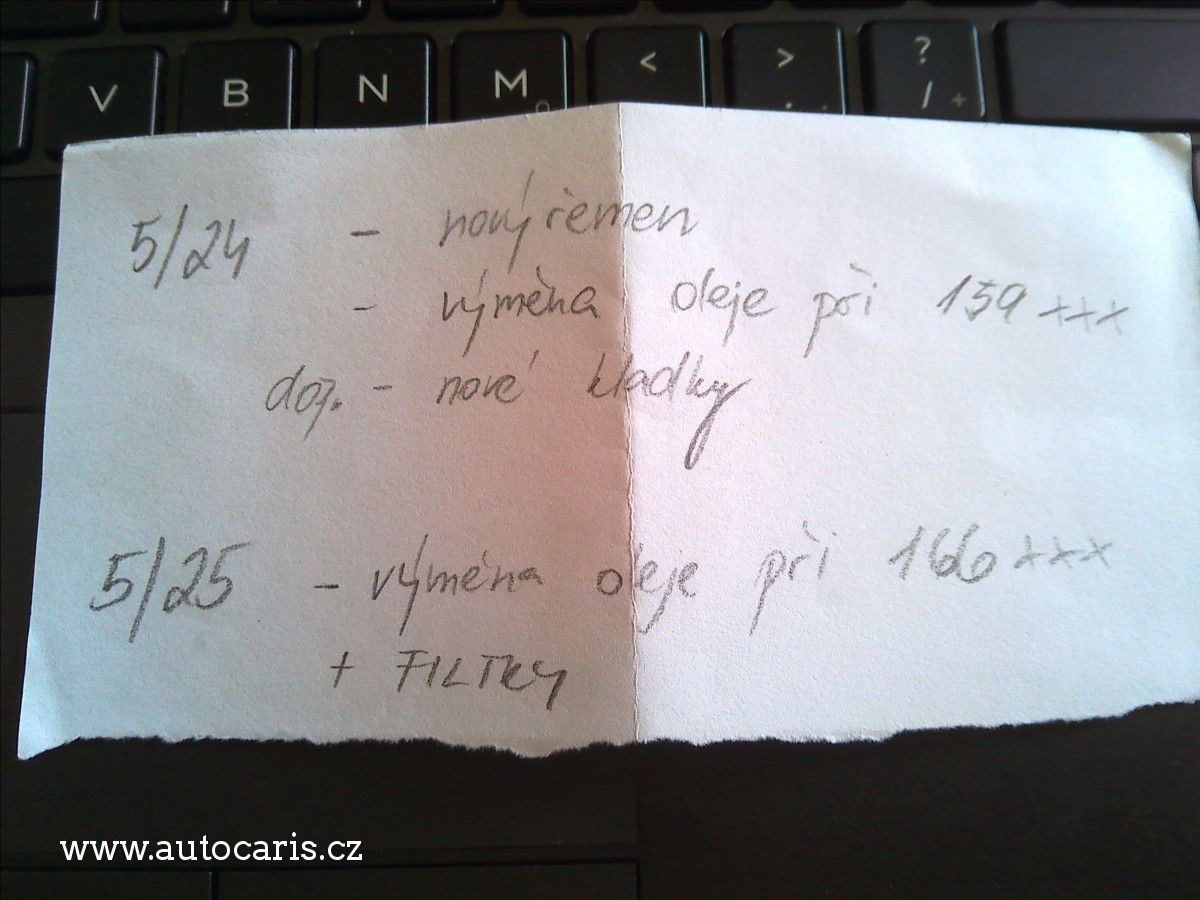 V B N M < > ? / +
5/24 - nový řemen
- výměna oleje při 159 xxx
dop. - nové kladky
5/25 - výměna oleje při 166 xxx
+ FILTRY
www.autocaris.cz